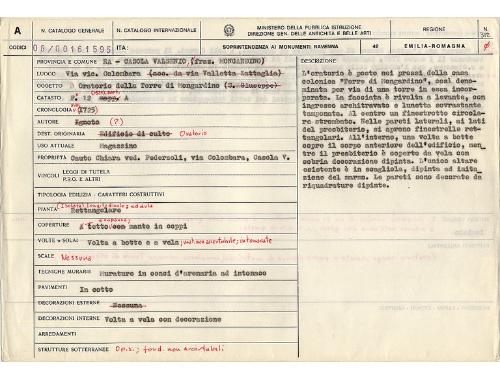 A
N. CATALOGO GENERALE
N. CATALOGO INTERNAZIONALE
MINISTERO DELLA PUBBLICA ISTRUZIONE
DIREZIONE GEN. DELLE ANTICHITÀ E BELLE ARTI
REGIONE
N.
CODICI
08/00161595
ITA:
SOPRINTENDENZA AI MONUMENTI RAVENNA
48
EMILIA-ROMAGNA
PROVINCIA E COMUNE RA - CASOLA VALSENIO (fraz. MONGARDINO)
LUOGO Via vic. Colombara (acc. da via Valletta Battaglia)
OGGETTO Oratorio della Torre di Mongardino (S. Giuseppe)
CATASTO F. 12 mapp. A
CRONOLOGIA (1725)
AUTORE Ignoto (?)
DEST. ORIGINARIA Edificio di culto Oratorio
USO ATTUALE Magazzino
PROPRIETÀ Cauto Chiara ved. Pederzoli, via Colombara, Casola V.
VINCOLI LEGGI DI TUTELA
P.R.G. E ALTRI
TIPOLOGIA EDILIZIA - CARATTERI COSTRUTTIVI
PIANTA Rettangolare
COPERTURE A tetto con manto in coppi
VOLTE o SOLAI Volta a botte e a vela;
SCALE Nessuna
TECNICHE MURARIE Murature in conci d'arenaria ad intonaco
PAVIMENTI In cotto
DECORAZIONI ESTERNE Nessuna
DECORAZIONI INTERNE Volta a vela con decorazione
ARREDAMENTI
STRUTTURE SOTTERRANEE
DESCRIZIONE
L'oratorio è posto nei pressi della casa
colonica "Torre di Mongardino", così deno-
minata per via di una torre in essa incor-
porata. La facciata è rivolta a levante, con
ingresso architravato e lunetta sovrastante
tamponata. Al centro un finestrotto circola-
re strombato. Nelle pareti laterali, ai lati
del presbiterio, si aprono finestrelle ret-
tangolari. All'interno, una volta a botte
copre il corpo anteriore dell'edificio, men-
tre il presbiterio è coperto da vela con
sobria decorazione dipinta. L'unico altare
esistente è in scagliola, dipinta ad imita-
zione del marmo. Le pareti sono decorate da
riquadrature dipinte.